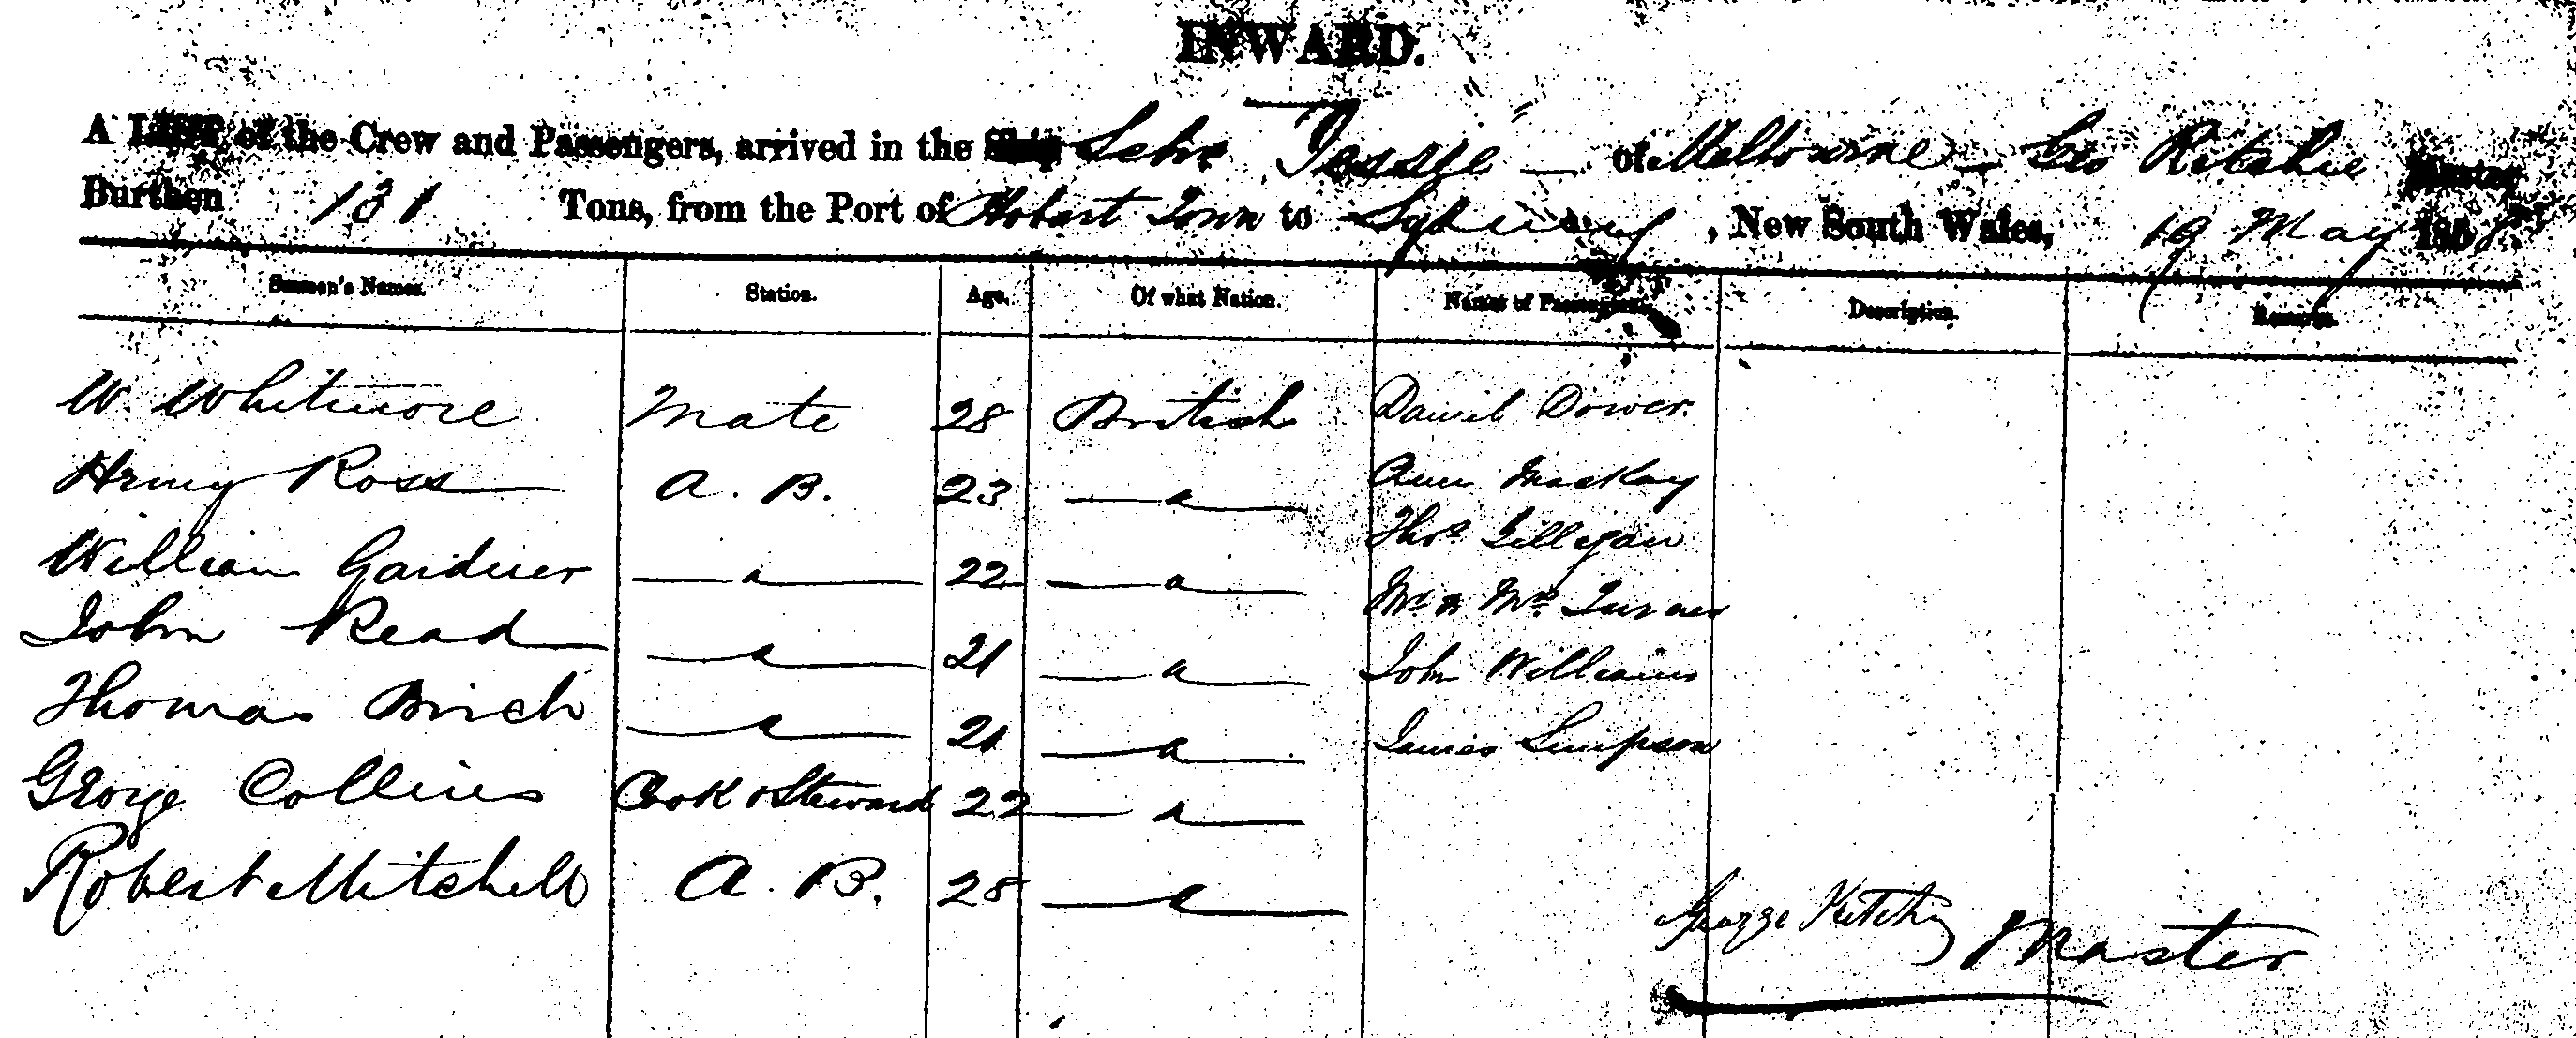 INWARD.
A LIST of the Crew and Passengers, arrived in the Ship Schr Jessie of Melbourne Geo Ritchie Master
Burthen 131 Tons, from the Port of Hobart Town to Sydney, New South Wales, 19 May 185
Seamen's Names. Station. Age. Of what Nation. Names of Passengers. Description. Remarks.
W. Whitmore Mate 28 British Daniel Dower.
Henry Ross A. B. 23 Ann MacKay
Thos Gilligan
William Gardner 22
Mr & Mrs Turner
John Read 21
John Williams
Thomas Birch 21
James Simpson
George Collins Cook & Steward 22
Robert Mitchell A. B. 28
George Ritchy Master